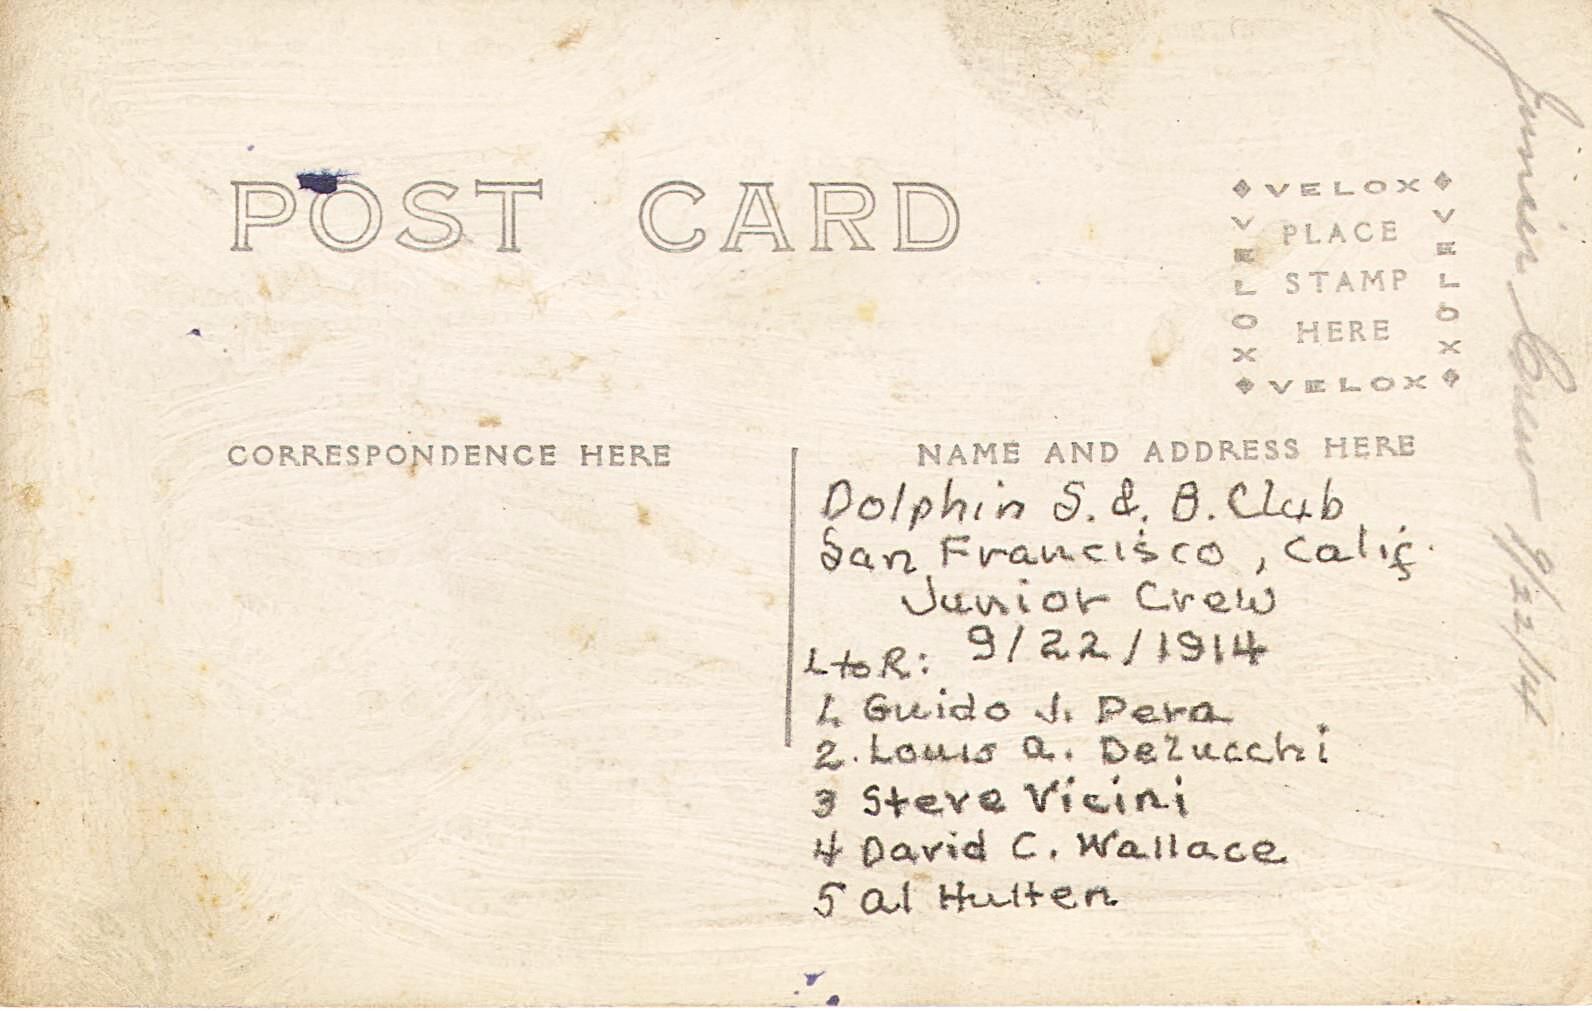 POST CARD
VELOX
VELOX
PLACE
STAMP
HERE
VELOX
VELOX
CORRESPONDENCE HERE
NAME AND ADDRESS HERE
Dolphin S. & B. Club
San Francisco, Calif.
Junior Crew
9/22/1914
L to R:
1. Guido J. Pera
2. Louis A. Delucchi
3 Steve Vicini
4 David C. Wallace
5 Al Hulten
Junior Crew - 9/22/14